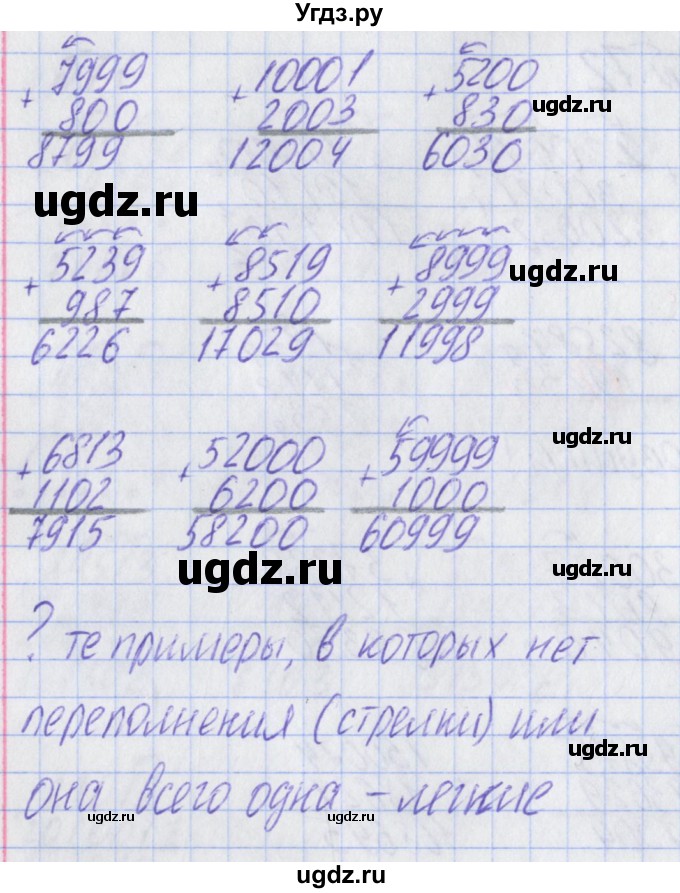 Угдз.ру
7999 10001 5200
+ 800 + 2003 + 830
8799 12004 6030
5239 8519 8999
+ 987 + 8510 + 2999
6226 17029 11998
6813 52000 59999
+ 1102 + 6200 + 1000
7915 58200 60999
? те примеры, в которых нет
переполнения (стрелки) или
она всего одна – легкие
ugdz.ru
ugdz.ru
ugdz.ru
ugdz.ru
ugdz.ru
ugdz.ru
ugdz.ru
ugdz.ru
ugdz.ru
ugdz.ru